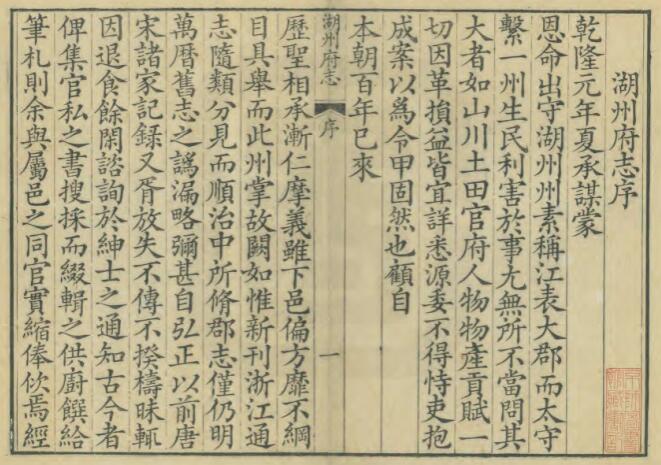 湖州府志序
乾隆元年夏承謀蒙
恩命出守湖州州素稱江表大郡而太守
繫一州生民利害於事尢無所不當問其
大者如山川土田官府人物物產貢賦一
切因革損益皆宜詳悉源委不得恃吏抱
成案以爲令甲固然也顧自
本朝百年已來
湖州府志
序
一
歷聖相承漸仁摩義雖下邑偏方靡不綱
目具舉而此州掌故闕如惟新刊浙江通
志隨類分見而順治中所脩郡志僅仍明
萬曆舊志之譌漏略彌甚自弘正以前唐
宋諸家記録又胥放失不傳不揆檮昧輒
因退食餘閑諮詢於紳士之通知古今者
俾集官私之書搜採而綴輯之供廚饌給
筆札則余與屬邑之同官實縮俸佽焉經